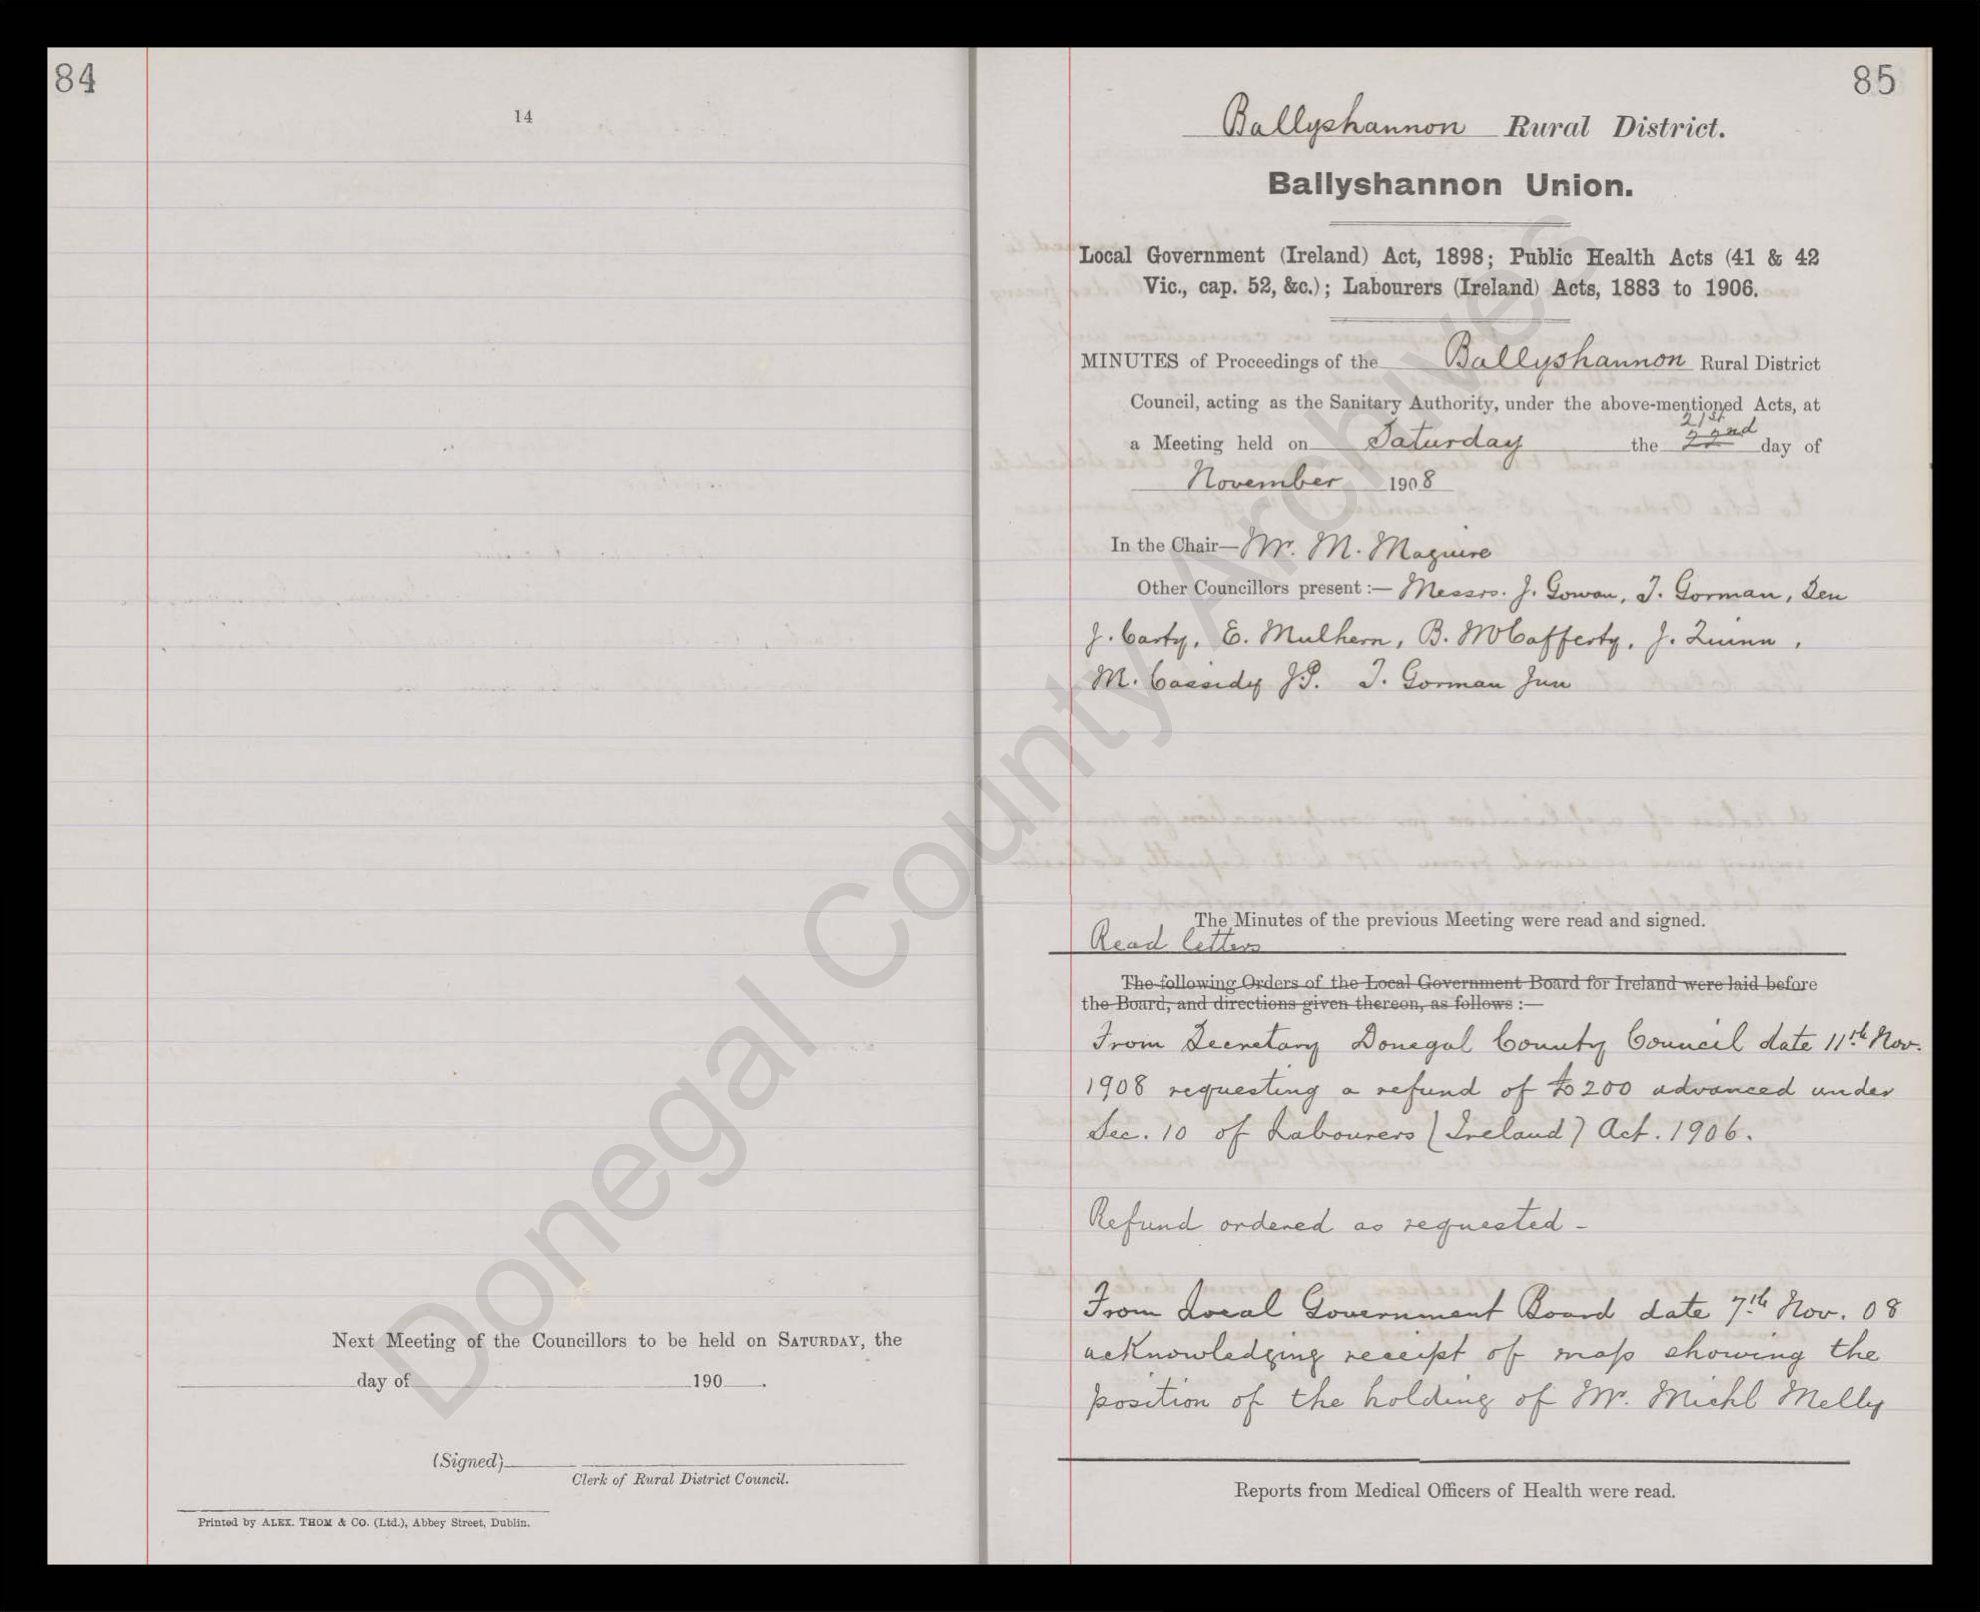 84
14
Next Meeting of the Councillors to be held on SATURDAY, the
day of 190 .
(Signed)
Clerk of Rural District Council.
Printed by ALEX. THOM & CO. (Ltd.), Abbey Street, Dublin.
85
Ballyshannon Rural District.
Ballyshannon Union.
Local Government (Ireland) Act, 1898; Public Health Acts (41 & 42
Vic., cap. 52, &c.); Labourers (Ireland) Acts, 1883 to 1906.
MINUTES of Proceedings of the Ballyshannon Rural District
Council, acting as the Sanitary Authority, under the above-mentioned Acts, at
21st
a Meeting held on Saturday the 22nd day of
November 1908
In the Chair—Mr. M. Maguire
Other Councillors present :— Messrs. J. Gowan, T. Gorman, Sen
J. Carty, E. Mulhern, B. McCafferty, J. Quinn,
M. Cassidy J.P. T. Gorman Jun
The Minutes of the previous Meeting were read and signed.
Read letters
The following Orders of the Local Government Board for Ireland were laid before
the Board, and directions given thereon, as follows :—
From Secretary Donegal County Council date 11th Nov.
1908 requesting a refund of £200 advanced under
Sec. 10 of Labourers (Ireland) Act. 1906.
Refund ordered as requested -
From Local Government Board date 7th Nov. 08
acknowledging receipt of map showing the
position of the holding of Mr. Michl Melly
Reports from Medical Officers of Health were read.
Donegal County Archives